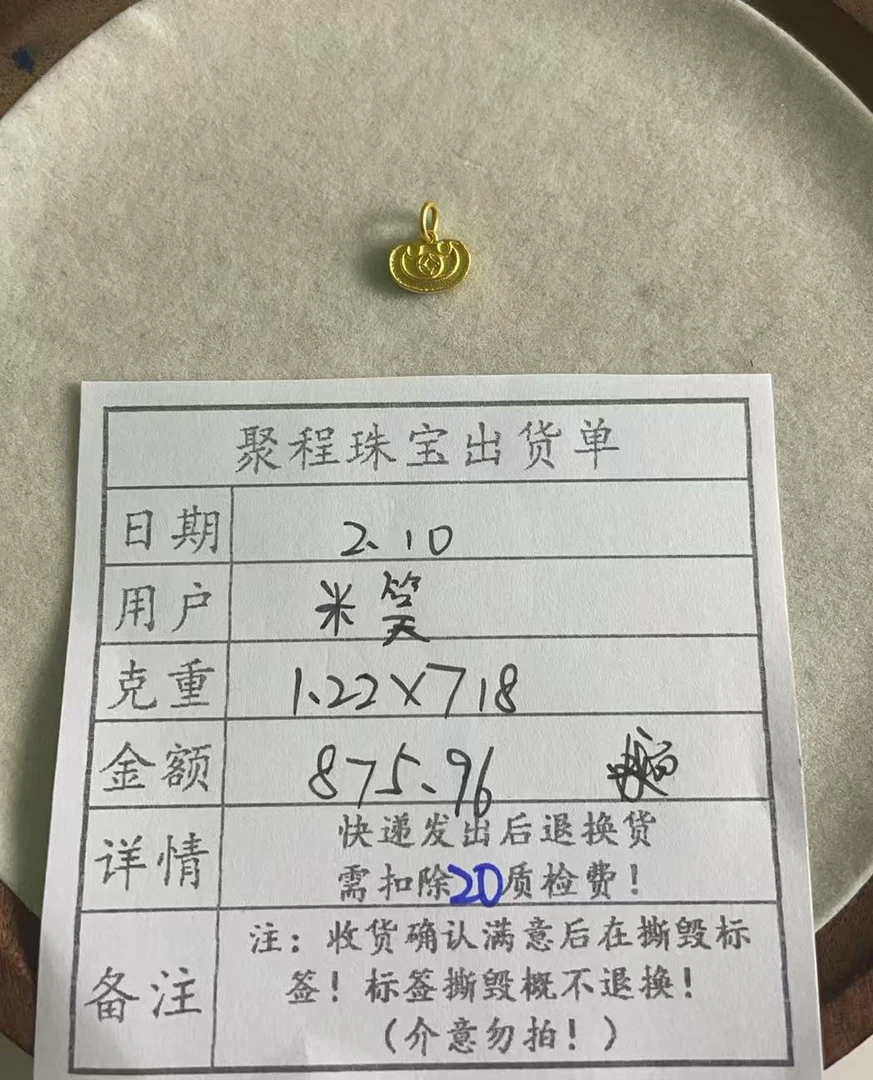 聚程珠宝出货单
日期 2.10
用户 米笑
克重 1.22×718
金额 875.96
详情 快递发出后退换货
需扣除20质检费！
备注 注：收货确认满意后在撕毁标
签！标签撕毁概不退换！
（介意勿拍！）